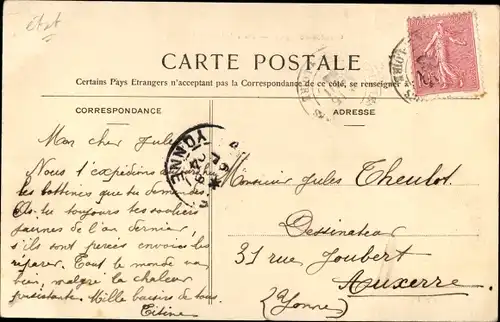 état
CARTE POSTALE
Certains Pays Etrangers n'acceptant pas la Correspondance de ce côté, se renseigner
CORRESPONDANCE
ADRESSE
Mon cher Jules
Nous t'expédions
les bottines que tu demandes.
As tu toujours tes souliers
jaunes de l'an dernier,
s'ils sont percés envoies les
réparer. Tout le monde va
bien, malgré la chaleur
persistante. Mille baisers de tous.
Titine
YONNE
Monsieur Jules Theulot.
Dessinateur
31 rue Joubert
Auxerre.
(Yonne)